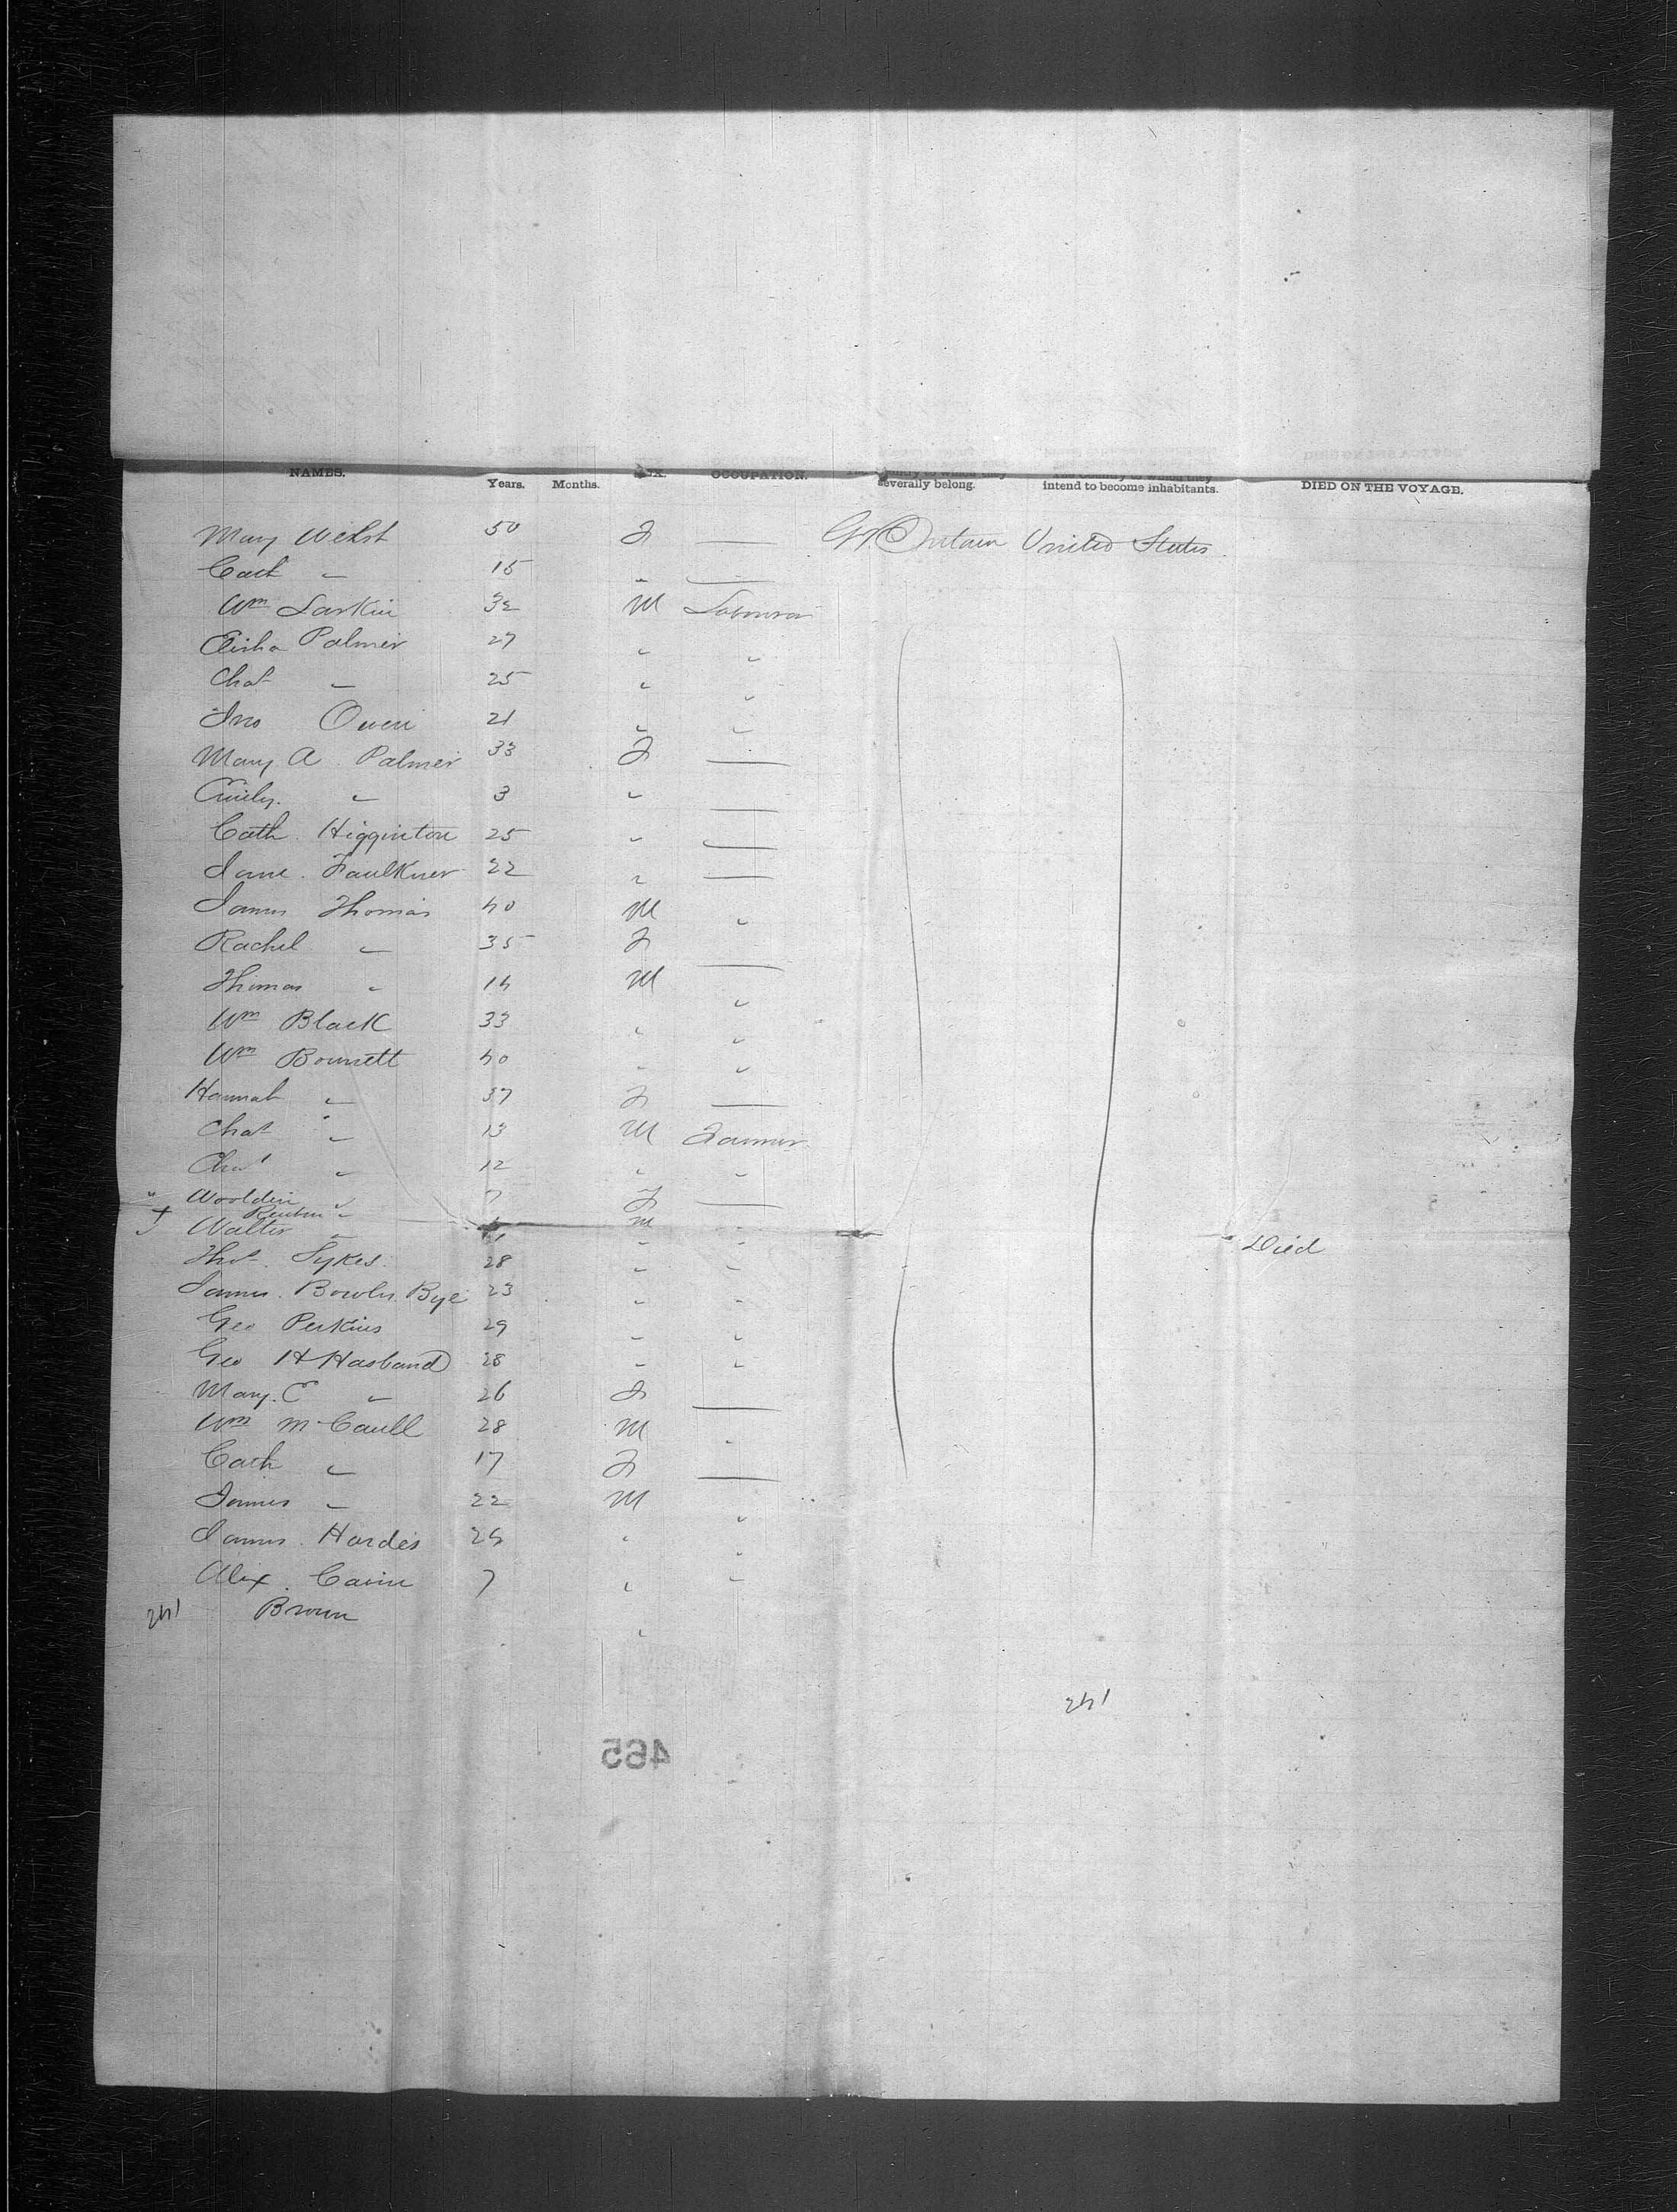 NAMES. Years. Months. SEX. OCCUPATION. The country to which they severally belong. The country to which they intend to become inhabitants. DIED ON THE VOYAGE.
Mary Welsh 50 F — Gt Britain United States
Cath " 15 " —
Wm Larkin 32 M Labourer
Elisha Palmer 27 " "
Chas " 25 " "
Jno Owen 21 " "
Mary A. Palmer 33 F —
Emily " 3 " —
Cath. Higginton 25 " —
Jane. Faulkner 22 " —
James Thomas 40 M "
Rachel " 35 F —
Thomas " 14 M "
Wm Black 33 " "
Wm Bonnett 40 " "
Hannah " 37 F —
Chas " 13 M Farmer
Chas " 12 " "
" 7 F —
Reuben " M "
Walter " " " Died
Thos. Sykes. 28 " "
James. Bowler Bye 23 " "
Geo Perkins 29 " "
Geo H Hasband 28 " "
Mary. E " 26 F —
Wm McCaull 28 M "
Cath " 17 F —
James " 22 M "
James. Hardes 24 " "
Alex. 7 " "
Brown "
241
465